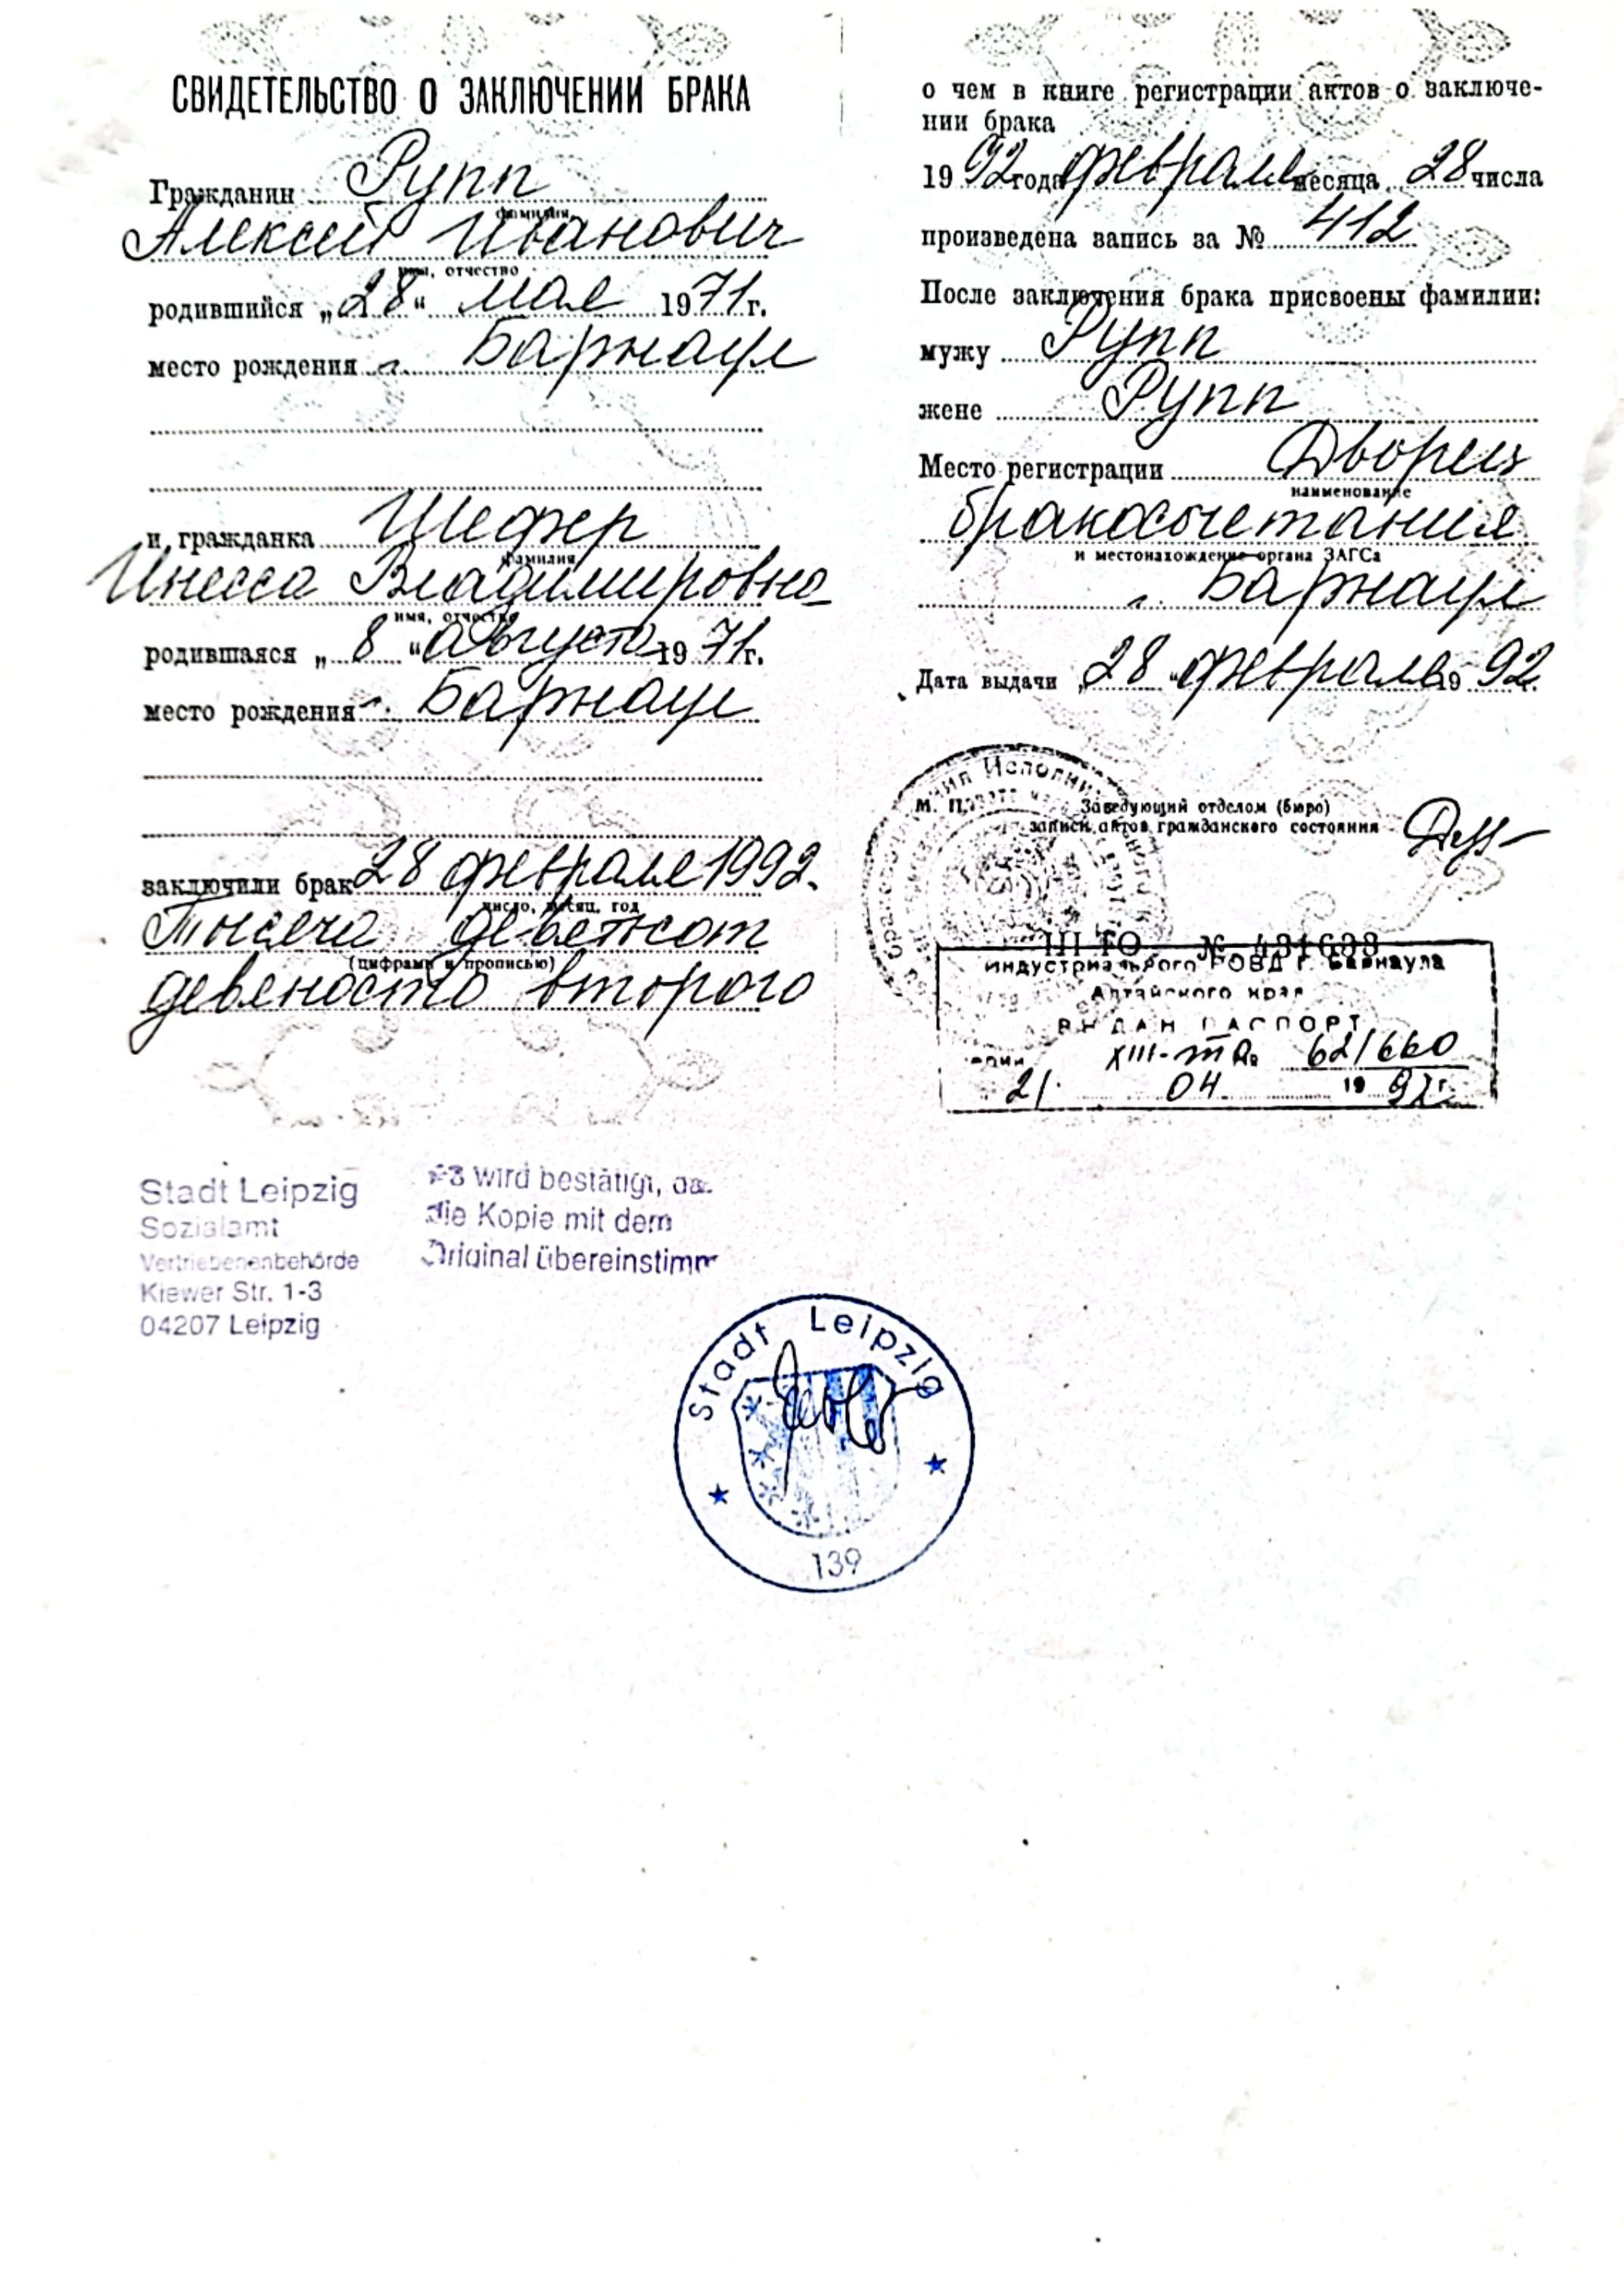 СВИДЕТЕЛЬСТВО О ЗАКЛЮЧЕНИИ БРАКА
Гражданин Рупп
фамилия
Алексей Иванович
имя, отчество
родившийся „28“ мая 1971 г.
место рождения г. Барнаул
и гражданка Шефер
фамилия
Инесса Владимировна
имя, отчество
родившаяся „8“ августа 1971 г.
место рождения г. Барнаул
заключили брак 28 февраля 1992.
число, месяц, год
Тысяча девятсот
(цифрами и прописью)
девяносто второго
о чем в книге регистрации актов о заключе-
нии брака
1992 года февраля месяца 28 числа
произведена запись за № 412
После заключения брака присвоены фамилии:
мужу Рупп
жене Рупп
Место регистрации Дворец
наименование
бракосочетания
и местонахождение органа ЗАГСа
г. Барнаул
Дата выдачи „28“ февраля 1992 г.
М. П.
Заведующий отделом (бюро)
записи актов гражданского состояния
III-ТО № 431638
Индустриального РОВД г. Барнаула
Алтайского края
ВЫДАН ПАСПОРТ
серии XIII-ТО № 621660
21. 04 1992г.
Stadt Leipzig
Sozialamt
Vertriebenenbehörde
Kiewer Str. 1-3
04207 Leipzig
wird bestätigt,
die Kopie mit dem
Original übereinstimm
Stadt Leipzig
139